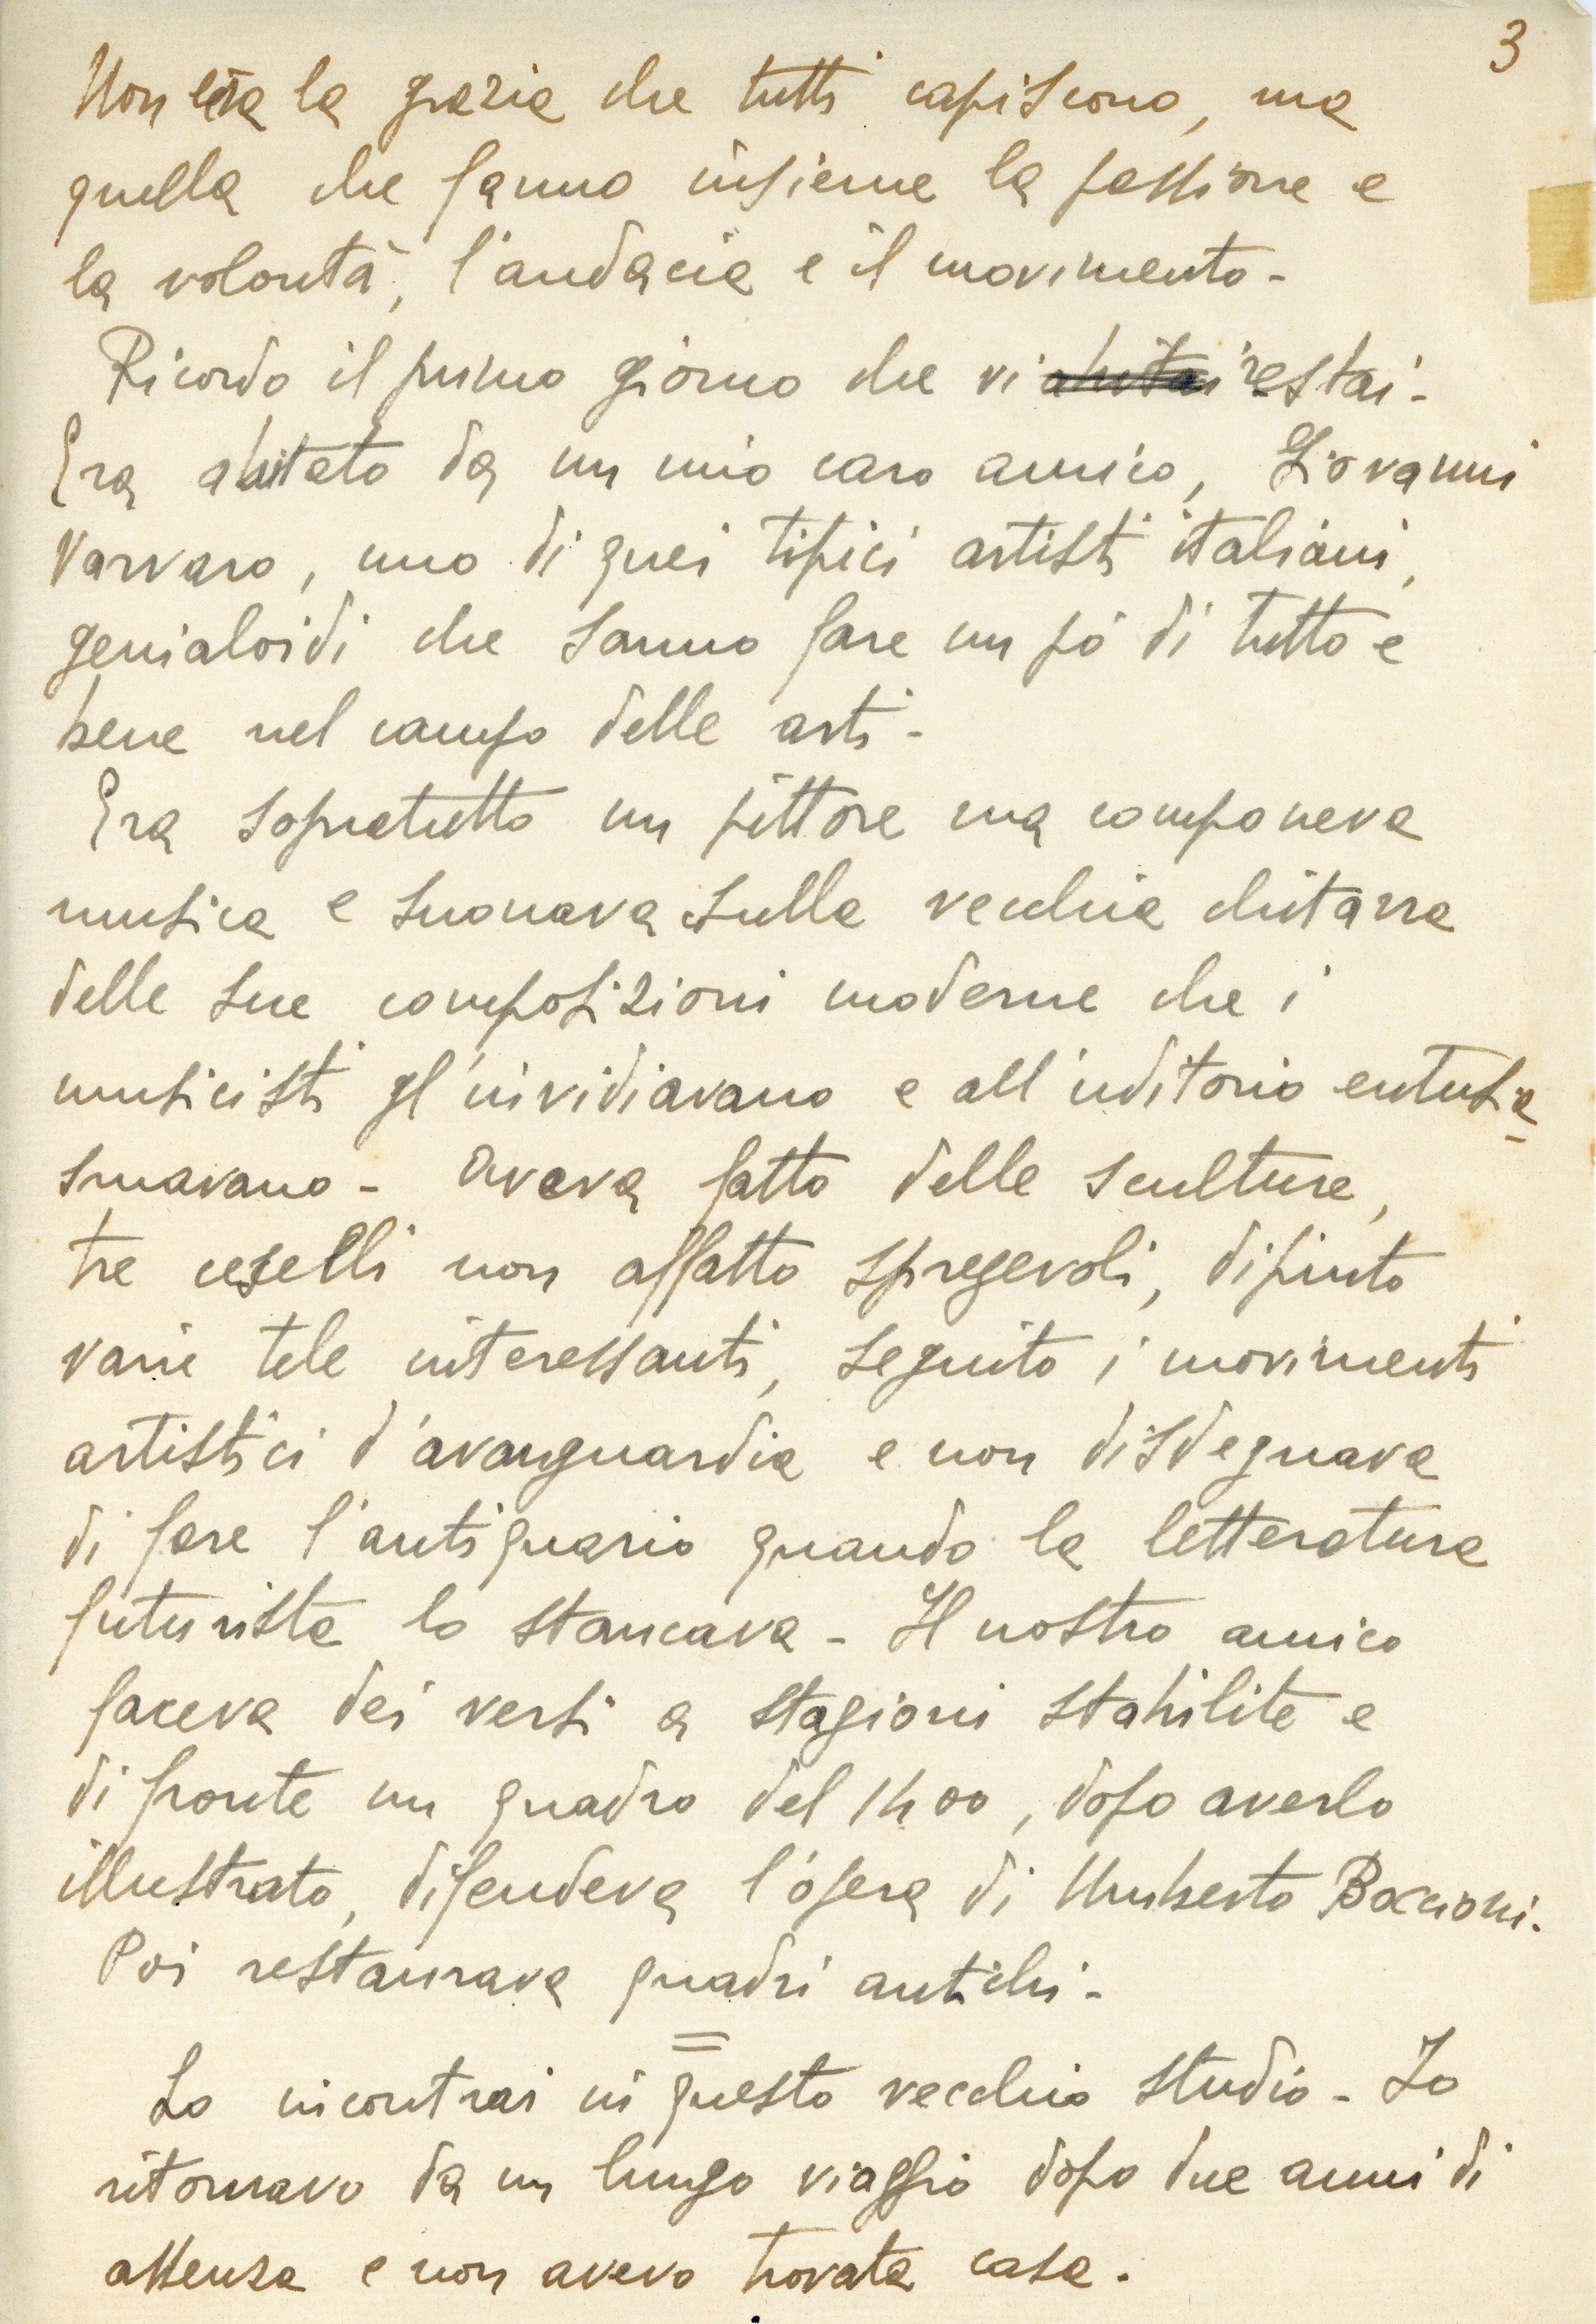 3
Non era la grazia che tutti capiscono, ma
quella che fanno insieme la passione e
la volontà, l'audacia e il movimento -
Ricordo il primo giorno che vi abitai restai -
Era abitato da un mio caro amico, Giovanni
Varvaro, uno di quei tipici artisti italiani,
genialoidi che sanno fare un pò di tutto e
bene nel campo delle arti -
Era sopratutto un pittore ma componeva
musica e suonava sulla vecchia chitarra
delle sue composizioni moderne che i
musicisti gl'invidiavano e all'uditorio entusia
smavano - Aveva fatto delle sculture,
tre ceselli non affatto spregevoli, dipinto
varie tele interessanti, seguito i movimenti
artistici d'avanguardia e non disdegnava
di fare l'antiquario quando la letteratura
futurista lo stancava - Il nostro amico
faceva dei versi a stagioni stabilite e
di fronte un quadro del 1400, dopo averlo
illustrato, difendeva l'opera di Umberto Boccioni.
Poi restaurava quadri antichi -
=
Lo incontrai in questo vecchio studio - Io
ritornavo da un lungo viaggio dopo due anni di
assenza e non avevo trovata casa.